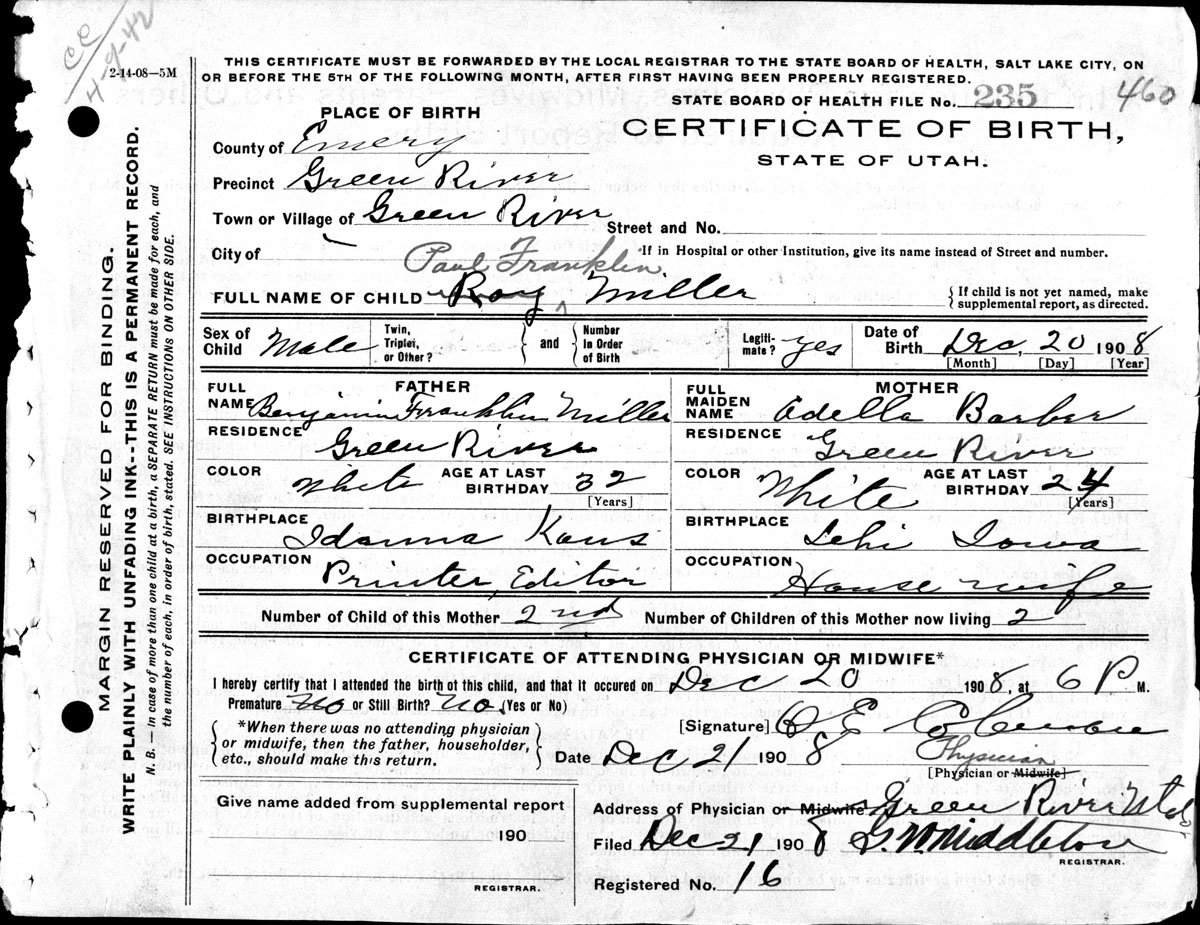 CC
4-9-42
2-14-08—5M
THIS CERTIFICATE MUST BE FORWARDED BY THE LOCAL REGISTRAR TO THE STATE BOARD OF HEALTH, SALT LAKE CITY, ON
OR BEFORE THE 5TH OF THE FOLLOWING MONTH, AFTER FIRST HAVING BEEN PROPERLY REGISTERED.
STATE BOARD OF HEALTH FILE No. 235 460
PLACE OF BIRTH
CERTIFICATE OF BIRTH,
STATE OF UTAH.
County of Emery
Precinct Green River
Town or Village of Green River
Street and No.
City of
*If in Hospital or other Institution, give its name instead of Street and number.
Paul Franklin
FULL NAME OF CHILD Roy ^ Miller
{If child is not yet named, make
supplemental report, as directed.
Sex of Child Male
Twin, Triplet, or Other?
and
Number In Order of Birth
Legiti-mate? yes
Date of Birth Dec, 20 1908
[Month] [Day] [Year]
FATHER
FULL NAME Benjamin Franklin Miller
RESIDENCE Green River
COLOR White AGE AT LAST BIRTHDAY 32
[Years]
BIRTHPLACE Idanna Kans
OCCUPATION Printer, Editor
MOTHER
FULL MAIDEN NAME Adella Barber
RESIDENCE Green River
COLOR White AGE AT LAST BIRTHDAY 24
[Years]
BIRTHPLACE Lehi Iowa
OCCUPATION House wife
Number of Child of this Mother 2nd Number of Children of this Mother now living 2
CERTIFICATE OF ATTENDING PHYSICIAN OR MIDWIFE*
I hereby certify that I attended the birth of this child, and that it occured on Dec 20 1908, at 6 P M.
Premature No or Still Birth? No (Yes or No)
*When there was no attending physician
or midwife, then the father, householder,
etc., should make this return.
[Signature] O E
Date Dec 21 1908 Physician
[Physician or Midwife]
Give name added from supplemental report
190
REGISTRAR.
Address of Physician or Midwife Green River Utah
Filed Dec 21 1908 G. W. Middleton
REGISTRAR.
Registered No. 16
MARGIN RESERVED FOR BINDING.
WRITE PLAINLY WITH UNFADING INK--THIS IS A PERMANENT RECORD.
N. B. — In case of more than one child at a birth, a SEPARATE RETURN must be made for each, and
the number of each, in order of birth, stated. SEE INSTRUCTIONS ON OTHER SIDE.